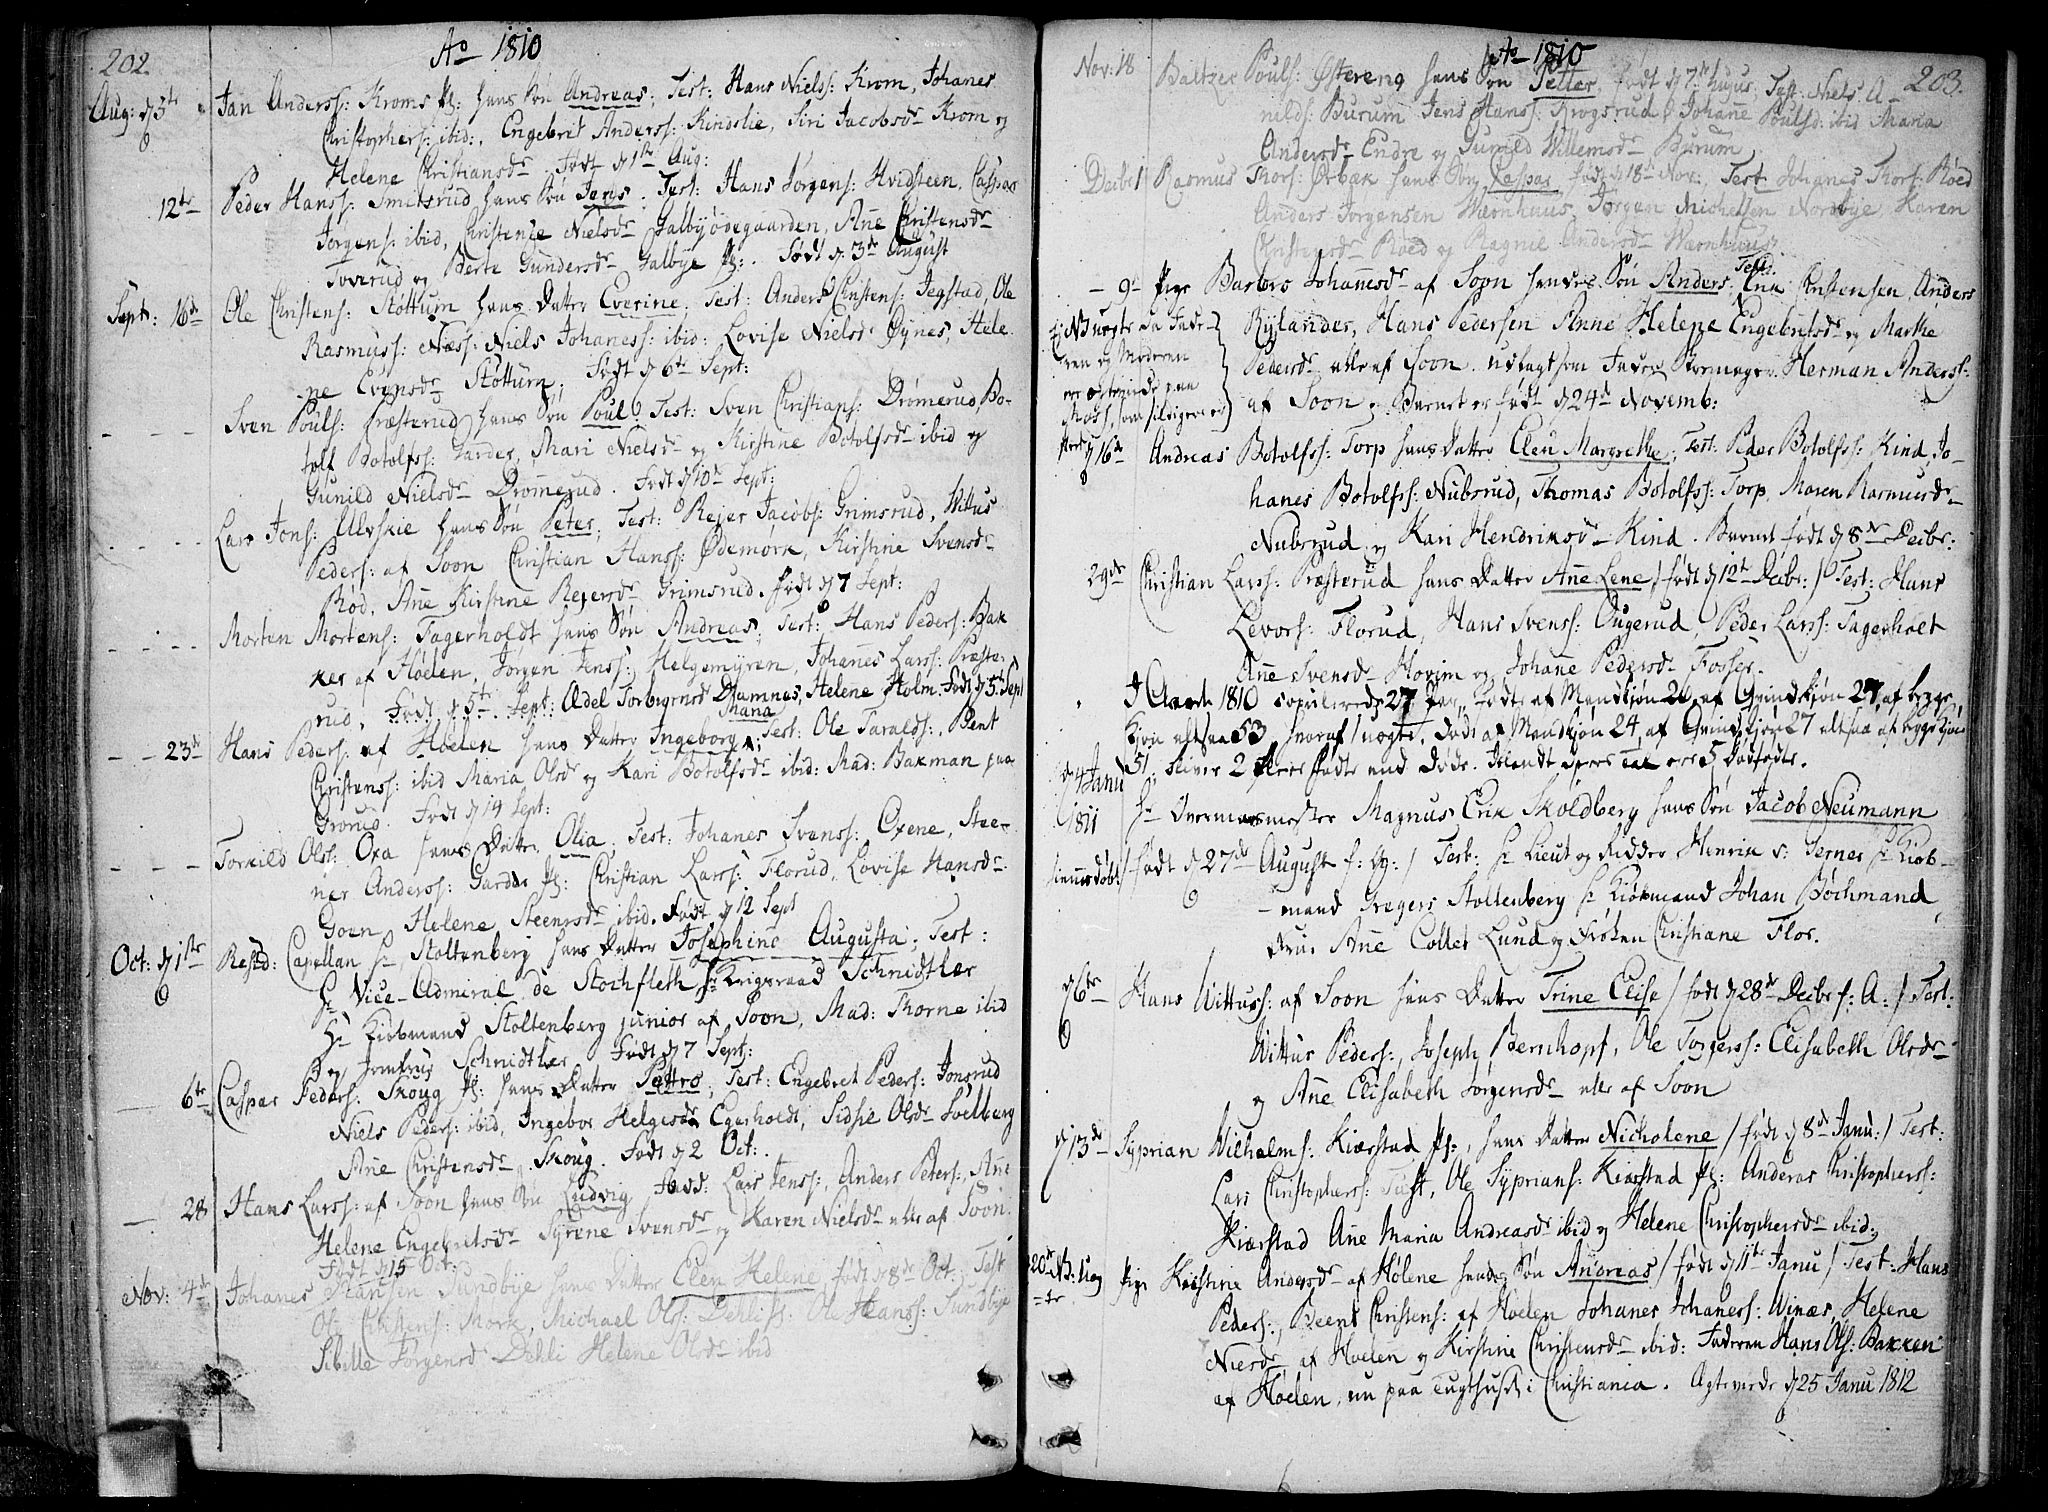 202.
Ao 1810
Aug: d 5te Jan Anderss: Kroms Pl: hans Søn Andreas; Test: Hans Nielss: Krom, Johanes
Christophers: ibid:, Engebret Anderss: Kindslie, Siri Jacobsdr Krom og
Helene Christiansdr Født d 1ste Aug:
12te Peder Hanss: Smetsrud hans Søn Jens; Test: Hans Jørgens: Hvidsteen, Caspar
Jørgens: ibid, Christense Nielsdr Galbyødegaarden, Ane Christensdr
Toverud og Berte Gundersdr Galbye Pl:. Født d. 3de August
Sept: 16de Ole Christens: Støttum hans Datter Everine; Test: Anders Christens: Jegstad, Ole
Rasmuss: Næss: Niels Johaness: ibid: Lovise Nielsdr Øynes, Hele
-ne Evensdr Støttum. Født d 6te Sept:
- - - Sven Pouls: Præsterud hans Søn Poul; Test: Sven Christians: Drømerud, Bo-
tolf Botolfss: Garder, Mari Nielsdr og Kirstine Botolfsdr ibid og
Gunild Nielsdr Drømerud. Født d 10de Sept:
- - - Lars Jons: Ulvskie hans Søn Peter; Test: Rejer Jacobs: Grimsrud, Wittus
Peders: af Soon Christian Hanss: Ødemørk, Kirstine Svensdr
Rød, Ane Kirstine Rejersdr Grimsrud. født d 7 Sept:
- - - Morten Mortens: Fagerholdt hans Søn Andreas; Test: Hans Peders: Bak
ker af Hølen, Jørgen Jenss: Helgemyren, Johanes Larss: Præste-
rud, Født d 5te Sept: Ædel Torbiørnsdr Damnes, Helene Holm. Født d 5te Sept
- - 23de Hans Peders: af Hølen hans Datter Ingeborg Maria; Test: Ole Taralds:, Bent
Christenss: ibid Maria Olsdr og Kari Botolfsdr ibid: Mad: Bakman paa
Grørud. Født d 14 Sept:
- - - Torkild Ols: Oxa hans Datter Olia; Test: Johanes Svenss: Oxene, Stee-
ner Anderss: Garder Pl: Christian Larss: Florud, Lovise Hansdr
Goen, Helene Steensdr ibid. Født d 12 Sept
Oct: d 1ste Resid: Capellan Hr Stoltenberg hans Datter Josephine Augusta; Test:
Hr Vice-Admiral de Stochfleth Hr Krigsraad Schmidtlær
Hr Kiøbmand Stoltenberg junior af Soon, Mad: Thorne ibid
og Jomfrue Schmidtlær. Født d 7 Sept:
- 6te Caspar Peders: Skoug Pl: hans Datter Pettro; Test: Engebret Peders: Jonsrud
Niels Peders: ibid, Ingebor Helgesdr Egerholdt, Sidsie Olsdr Solberg
Ane Christensdr Skoug. Født d 2 Oct:.
- 28 Hans Larss: af Soon hans Søn Ludvig Fadd: Lars Jenss:, Anders Peters:, Ane
Helene Engebretsdr Syrene Svensdr og Karen Nielsdr alle af Soon.
Født d 15 Oct:
Nov: 4de Johanes Hansen Sundbye hans Datter Elen Helene født d 8de Oct: Test
Ole Christens: Mork, Michael Ols: Dehlis: Ole Hanss: Sundbye
Sibille Jørgensdr Dehli Helene Olsdr ibid
Ao 1810
203.
Nov: 18 Baltzer Pouls: Østereng hans Søn Petter, født d 7de hujus, Test: Niels A-
nilds: Burum Jens Hans: Krogsrud Johane Poulsd: ibid Maria
Andersdr Endre og Gunild Willemsdr Burum
Decbr 1 Rasmus Thors: Ørbæk hans Søn Caspar født d 18de Nov:, Test Johanes Thors: Røed
Anders Jørgensen Wærnhuus, Jørgen Michelsen Nordbye, Karen
Christensdr Røed og Ragnil Andersdr Wærnhuus
- 9- Pige Barbro Johanesdr af Soon hendes Søn Anders, Test: Erik Christensen, Anders
Rylander, Hans Pedersen Anne Helene Engebretsdr og Marthe
Pedersdr alle af Soon. udlagt som Fader Herman Anderss:
af Soon og Barnet er født d 24de Novemb:
NB uægte da Fade-
ren og Moderen
er paa
Moss, som
d 16de Andreas Botolfss: Torp hans Datter Elen Margrethe; Test: Peder Botolfss: Kind, Jo-
hanes Botolfss: Nubsrud, Thomas Botolfss: Torp, Maren Rasmusdr
Nubsrud og Kari Hendriksdr Kind. Barnet født d 8de Decbr:
29de Christian Larss: Præsterud hans Datter Ane Lene / født d 12te Decbr: / Test: Hans
Levors: Florud, Hans Svenss: Ougerud, Peder Larss: Fagerholt
Ane Svensdr Hovim og Johane Pedersdr Fosser.
I Aaret 1810 27 Par, Fødte af Mandkjøn 26 af Qvindekjøn 27, af begge
Kjøn altsaa 53, hvoraf 1 uægte. Døde af Mandkjøn 24, af Qvindekjøn 27 altsaa af begge Kjøn
51, bliver 2 flere fødte end døde. Iblandt deres Tal ere 5 dødfødte.
d 4 Janu
1811 Hr Magnus Erik Skoldberg hans Søn Jacob Neumann
hiemedøbt / født d 27de August f: A: / Test: Hr Lieut og Ridder Henrik v: Ternes Hr Kiøb-
-mand Gregers Stoltenberg Hr Kiøbmand Johan Bøchmand
Fru Ane Collet Lund og Frøken Christiane Flor.
d 6te Hans Wittuss: af Soon hans Datter Trine Elise / født d 28de Decbr f: A: / Test:
Wittus Peders:, Joseph Bernhopf, Ole Torgerss: Elisabeth Olsdr
og Ane Elisabeth Jørgensdr alle af Soon
d 13de Syprian Wilhelms: Kiærstad Pl:, hans Datter Nicholene / født d 8de Janu: / Test:
Lars Christophers: Tust, Ole Syprians: Kiærstad Pl: Anderas Christophers:
Kiærstad Ane Maria Andreasdr ibid og Helene Christophersdr ibid:
20de NB: Uæg
-te Pige Kirstine Andersdr af Hølene hendes Søn Andreas / født d 11te Janu / Test: Hans
Peders:, Beent Christens: af Hølen Johanes Johaness: Winæs, Helene
Nielsdr af Hølen og Kirstine Christensdr ibid: Faderen Hans Ols: Bakken
af Hølen, nu paa Tugthuset i Christiania. Ægteviede d 25 Janu 1812